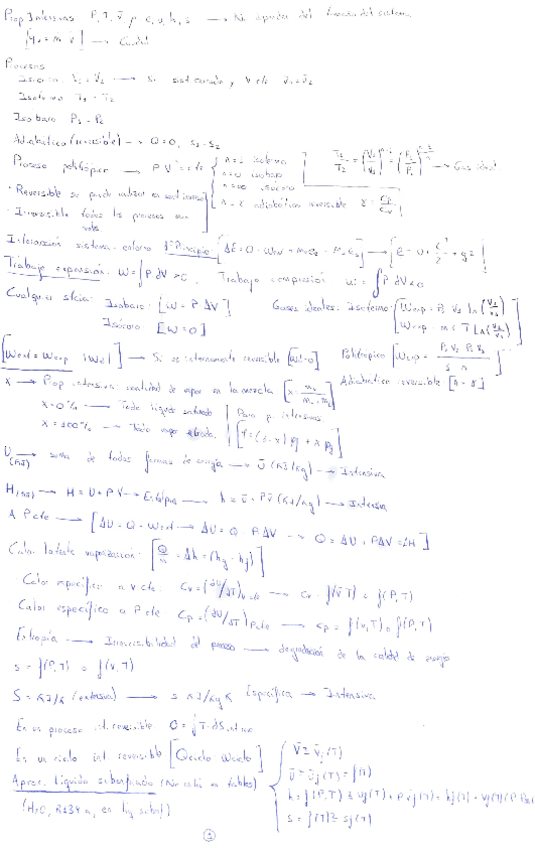 Prop Intensivas P, T, v̄, ρ, c, u, h, s → No dependen del tamaño del sistema
→ Caudal
Procesos
Isócoro V₁ = V₂ → Si sist. cerrado y V cte v̄₁ = v̄₂
Isotermo T₁ = T₂
Isobaro P₁ = P₂
Adiabático (reversible) → Q=0, s₁=s₂
Proceso politrópico → P Vⁿ = cte { n=1 isotermo T₂/T₁ = (V₁/V₂)ⁿ⁻¹ = (P₂/P₁)^(n-1/n) → Gas ideal
n=0 isobaro
n=∞ isócoro
· Reversible se puede realizar en sentido inverso n=γ adiabático reversible γ = cp/cv
· Irreversible todos los procesos son reales
Interacción sistema-entorno 1º Principio [ΔE = Q - W + m₁e₁ - m₂e₂] → [e = u + c²/2 + gz]
Trabajo expansión W = ∫P dV > 0, Trabajo compresión W = ∫P dV < 0
Cualquier stcia: Isobaro: [W = P ΔV] Gases ideales: Isotermo: [Wexp = P₁ V₁ ln(V₂/V₁)
Isócoro: [W=0] Wexp = m r T ln(V₂/V₁)]
→ Si es internamente reversible Politrópico
x → Prop intensiva: cantidad de vapor en la mezcla Adiabático reversible [n = γ]
x=0% → Todo líquido saturado Para p. intensivas
x=100% → Todo vapor saturado [y = (1-x) yf + x yg]
U (kJ) → suma de todas formas de energía → ū (kJ/kg) → Intensiva
H (kJ) → H = U + PV → Entalpía → h = ū + P v̄ (kJ/kg) → Intensiva
A P cte → [ΔU = Q - W → ΔU = Q - PΔV → Q = ΔU + PΔV = ΔH]
Calor latente vaporización: [Q/m = Δh = (hg - hf)]
Calor específico a v cte: cv = (∂U/∂T)v cte → cv = f(v̄, T) o f(P,T)
Calor específico a P cte cp = (∂U/∂T)P cte → cp = f(v,T) o f(P,T)
Entropía → Irreversibilidad del proceso → degradación de la calidad de energía
s = f(P,T) o f(v,T)
S = kJ/K (extensiva) → s kJ/kg K Específica → Intensiva
En un proceso int. reversible Q = ∫T·dS
En un ciclo int. reversible [Qciclo = Wciclo]
Aprox. líquido subenfriado (No está en tablas)
(H₂O, R134a, en líq. subenf)
v̄ ≅ v̄f(T)
ū = ūf(T) = f(T)
h = f(P,T) ≅ uf(T) + P vf(T) = hf(T) + vf(T)
s = f(T) ≅ sf(T)
1